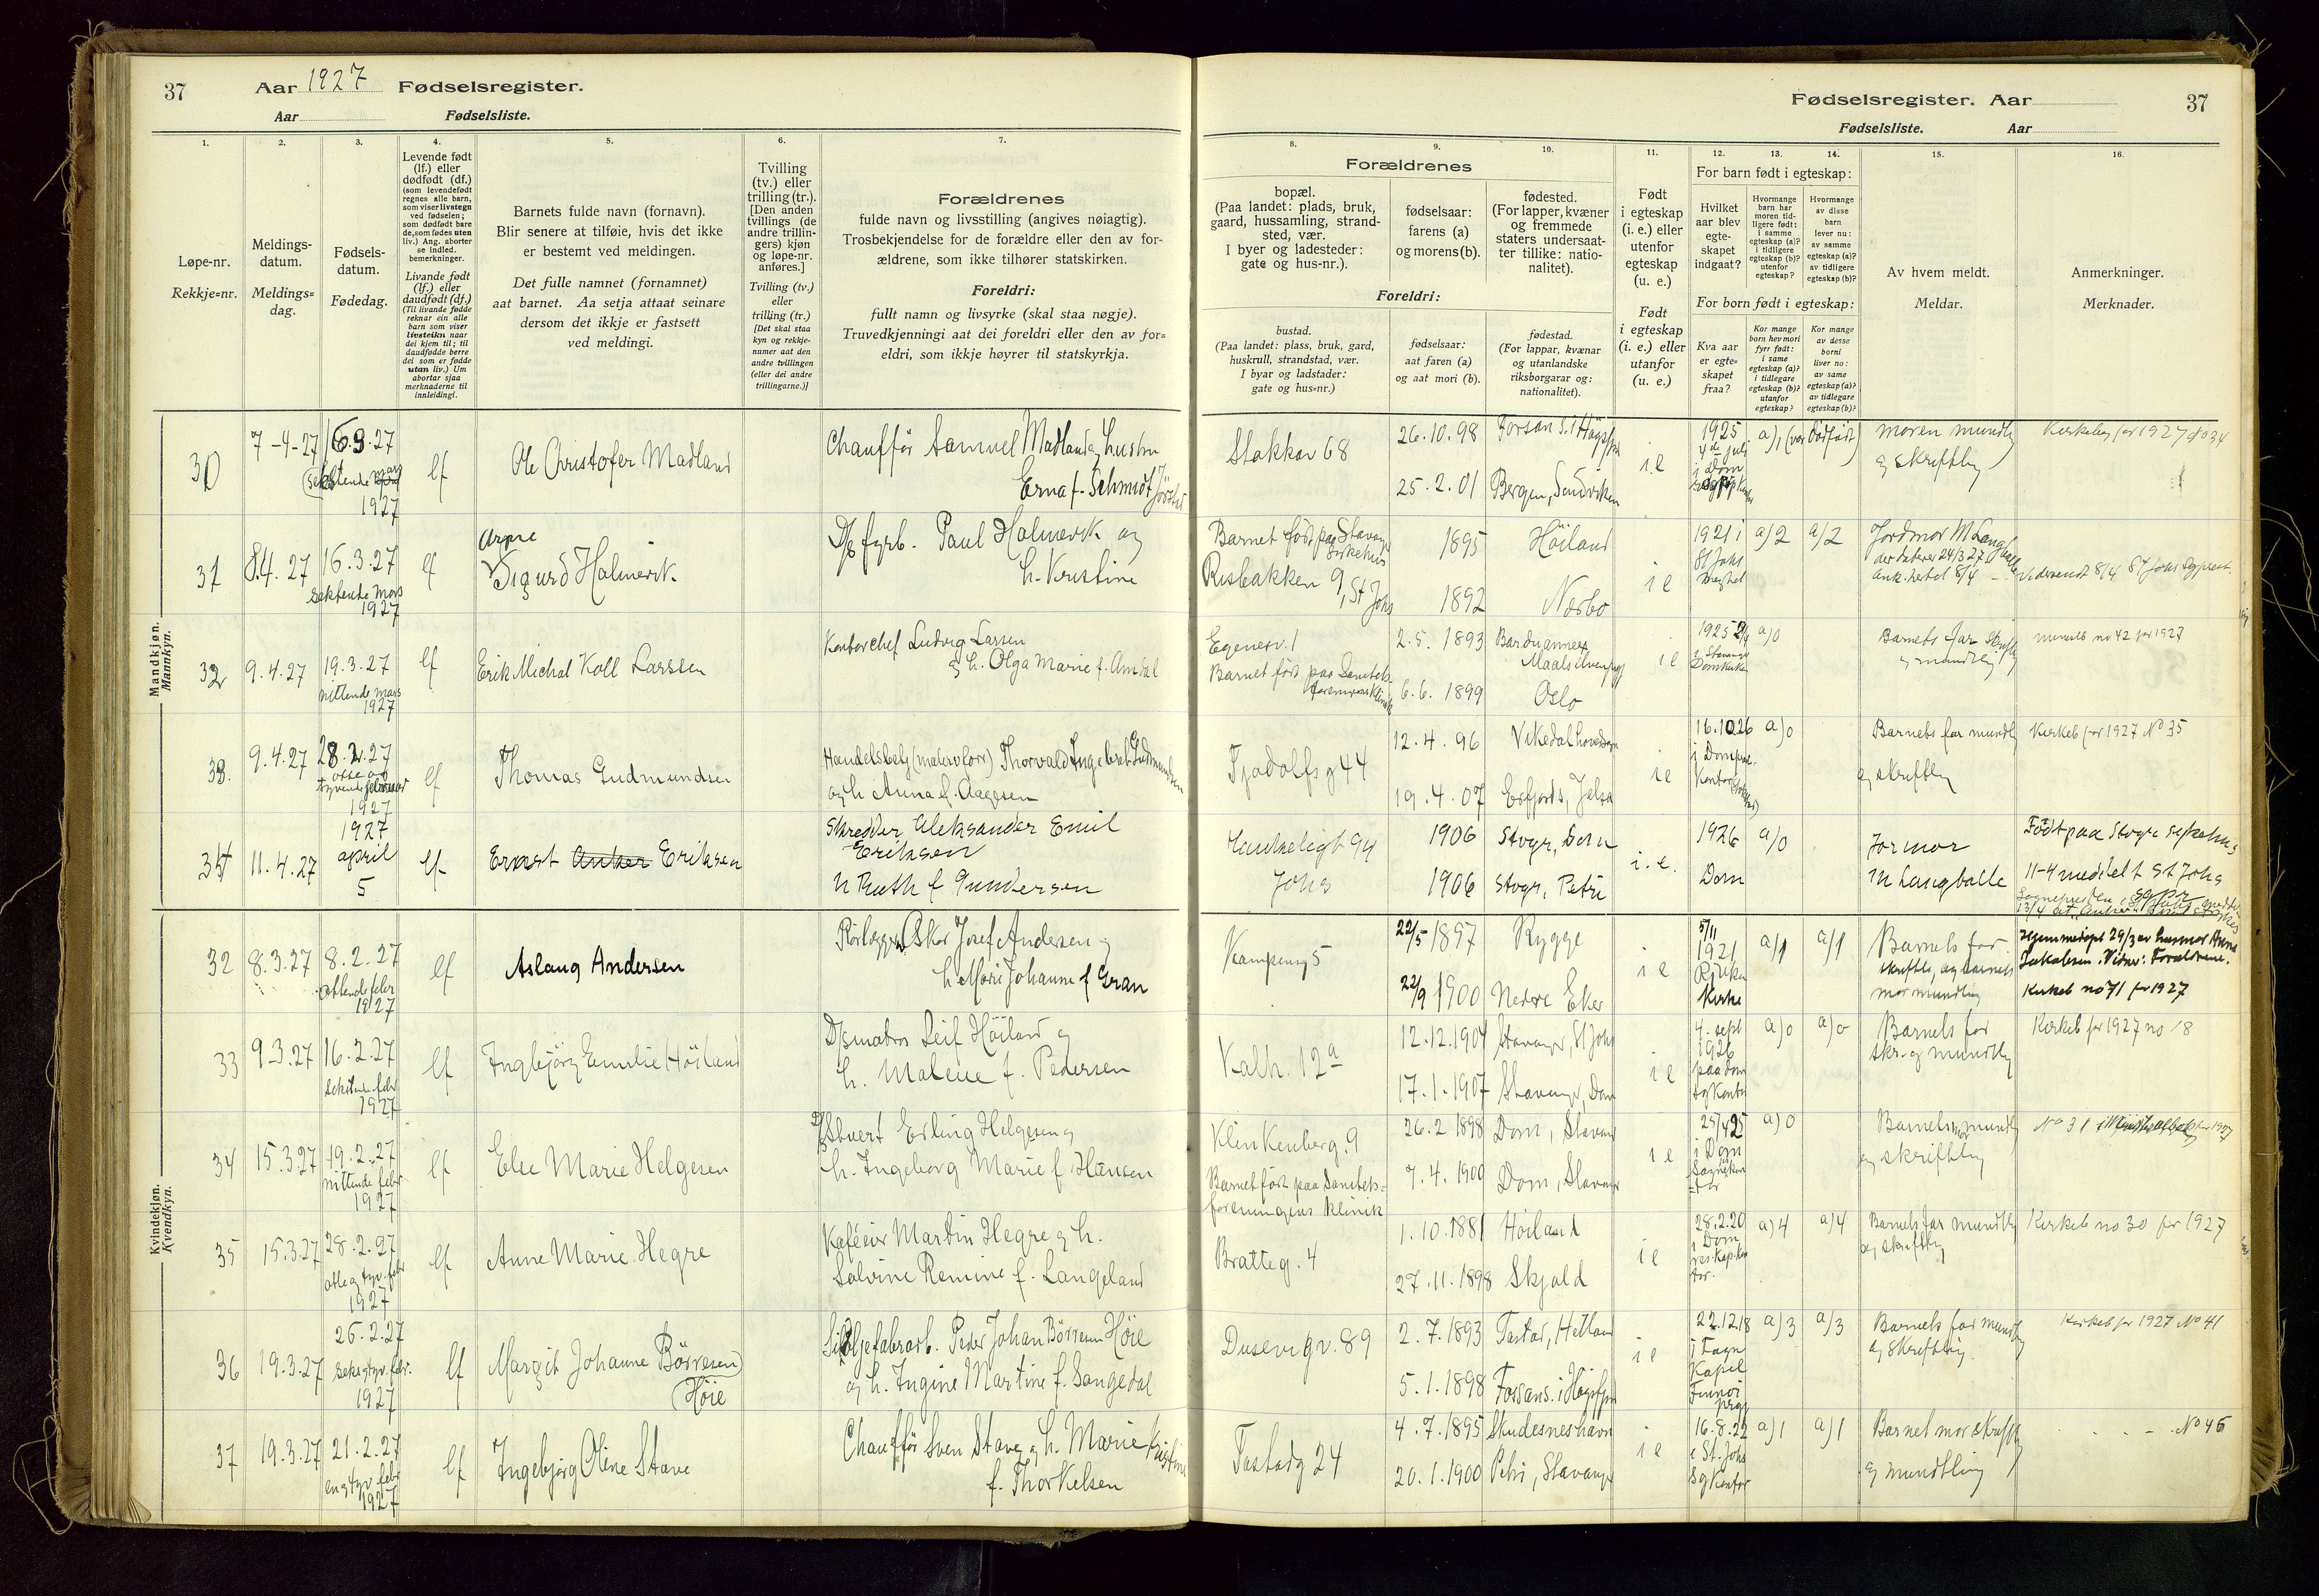 37 Aar 1927 Fødselsregister.
Aar Fødselsliste.
1.
2.
3.
4.
5.
6.
7.
Løpe-nr.
Rekkje=nr.
Meldings-
datum.
Meldings=
dag.
Fødsels-
datum.
Fødedag.
Levende født
(lf.) eller
dødfødt (df.)
(som levendefødt
regnes alle barn,
som viser livstegn
ved fødselen;
som dødfødt bare
de, som fødes uten
liv.) Ang. aborter
se indled.
bemerkninger.
Livande født
(lf.) eller
daudfødt (df.)
(Til livande fødde
reknar ein alle
barn som viser
livsteikn naar
dei kjem til; til
daudfødde berre
dei som er fødde
utan liv.) Um
abortar sjaa
merknaderne til
innleidingi.
Barnets fulde navn (fornavn).
Blir senere at tilføie, hvis det ikke
er bestemt ved meldingen.
Det fulle namnet (fornamnet)
aat barnet. Aa setja attaat seinare
dersom det ikkje er fastsett
ved meldingi.
Tvilling
(tv.) eller
trilling (tr.).
[Den anden
tvillings (de
andre trillin-
gers) kjøn
og løpe-nr.
anføres.]
Tvilling (tv.)
eller
trilling (tr.)
[Det skal staa
kyn og rekkje-
numer aat den
andre tvillingen
(eller dei andre
trillingarne.)]
Forældrenes
fulde navn og livsstilling (angives nøiagtig).
Trosbekjendelse for de forældre eller den av for-
ældrene, som ikke tilhører statskirken.
Foreldri:
fullt namn og livsyrke (skal staa nøgje).
Truvedkjenningi aat dei foreldri eller den av for-
eldri, som ikkje høyrer til statskyrkja.
Mandkjøn.
Mannkyn.
30 7-4-27 16.3.27 lf Ole Christofer Madland Chauffør Samuel Madland og hustru
1927 Erna f. Schmidt Jörstad
Arne
31 8.4.27 16.3.27 lf Sigurd Halmerik. D/s fyrb. Paul Halmerik og
sekstende mars h. Kristine
1927
32 9.4.27 19.3.27 lf Erik Michal Koll Larssen Kontorchef Ludvig Larsen
nittende mars & h. Olga Marie f. Amdal
1927
33. 9.4.27 28.2.27 lf Thomas Gudmundsen Thorvald Ingebret Gudmundsen
otte og og h Anna f. Aagesen
tyvende februar
1927
34 11.4.27 1927 april 5 lf Ernst Anker Eriksen Skredder Aleksander Emil
Eriksen
h Ruth f Gundersen
Kvindekjøn.
Kvendkyn.
32 8.3.27 8.2.27 lf Aslaug Andersen Rörlægger Oskar Josef Andersen og
ottende febr h Marie Johanne f Gran
1927
33 9.3.27 16.2.27 lf Ingebjörg Emilie Höiland D/s matros Leif Höiland og
sekstende febr h. Malene f. Pedersen
1927
34 15.3.27 19.2.27 lf Else Marie Helgesen D/s Stuert Erling Helgesen og
nittende febr h. Ingeborg Marie f Hansen
1927
35 15.3.27 28.2.27 lf Anne Marie Hegre Kaféeier Martin Hegre og h.
otte og tyv. febr Solvine Remine f. Langeland
1927
36 19.3.27 26.2.27 lf Margit Johanne Börresen Peder Johan Börresen Höie
seks og tyv. febr. (Höie og h. Ingine Martine f. Sangedal
1927
37 19.3.27 21.2.27 lf Ingebjørg Oline Stave Chauffør Sven Stave og h. Marie Kristine
en og tyv febr f. Thorkelsen
1927
Fødselsregister. Aar 37
Fødselsliste. Aar
8.
9.
10.
11.
12.
13.
14.
15.
16.
Forældrenes
bopæl.
(Paa landet: plads, bruk,
gaard, hussamling, strand-
sted, vær.
I byer og ladesteder:
gate og hus-nr.).
fødselsaar:
farens (a)
og morens (b).
fødested.
(For lapper, kvæner
og fremmede
staters undersaat-
ter tillike: natio-
nalitet).
Foreldri:
bustad.
(Paa landet: plass, bruk, gard,
huskrull, strandstad, vær.
I byar og ladstader:
gate og hus=nr.)
fødselsaar:
aat faren (a)
og aat mori (b).
fødestad.
(For lappar, kvænar
og utanlandske
riksborgarar og:
nationalitet).
Født
i egteskap
(i. e.) eller
utenfor
egteskap
(u. e.)
Født
i egteskap
(i. e.) eller
utanfor
(u. e.)
For barn født i egteskap:
Hvilket
aar blev
egte-
skapet
indgaat?
Hvormange
barn har
moren tid-
ligere født:
i samme
egteskap (a)?
i tidligere
egteskap (b)?
utenfor
egteskap?
Hvormange
av disse
barn
lever nu:
av samme
egteskap (a)?
av tidligere
egteskap (b)?
For born født i egteskap:
Kva aar
er egte=
skapet
fraa?
Kor mange
born hev mori
fyrr født:
i same
egteskap (a)?
i tidlegare
egteskap (b)?
utanfor
egteskap?
Kor mange
av desse
borni
liver no:
av same
egteskap (a)?
av tidlegare
egteskap (b)?
Av hvem meldt.
Meldar.
Anmerkninger.
Merknader.
Stokkav 68 26.10.98 i e 1925 a) 1 (var dødfødt) moren mundtlig Kirkebog for 1927 No 34
25.2.01 Bergen, Sandviken 4de juli i Dom og skriftlig
Barnet født paa Stavanger Sykehus 1895 Höiland i e 1921 i a) 2 a) 2 Jordmor M Langballe
Risbakken 9, St Johs 1892 Nærbø St Johs
Egenesv. 1 2.5. 1893 i e 1925 a) 0 Barnets far skriftlig no 42 for 1927
Barnet født paa Sanitets- 6.6. 1899 Oslo i Stavanger Domkirke og mundtlig
foreningens Klinik
44 12.4.96 Vikedal i e 16.10.26 a) 0 Barnets far mundtlig Kirkeb for 1927 No 35
19.4.07 Erfjord, Jelsa og skriftlig
Haukeligt 94 1906 Stvgr, Dom i. e. 1926 a) 0 Jormor Født paa Stvgr sykehus
Johs 1906 Stvgr, Petri Dom M Langballe 11-4 meddelt St Johs
Kampeng 5 22/5 1897 Rygge i e 5/11 1921 a) 1 a) 1 Barnets far Hjemmedøpt 29/3 av husmor Anna
22/9 1900 Nedre Eker Rjukan Kirke skriftlig og barnets Jakobsen. Vidner: Forældrene.
mor mundtlig Kirkeb no 71 for 1927
Kalh. 12 a 12.12.1904 Stavanger, St Johs i e 4. sept 1926 a) 0 a) 0 Barnets far Kirkeb for 1927 no 18
17.1.1907 Stavanger, Dom paa dom skr. og mundtlig
Klinkenberg. 9 26.2 1898 Dom, Stavanger i e 25/4 25 a) 0 Barnets mundtlig No 31
Barnet født paa Sanitets= 7.4.1900 Dom, Stavanger i Dom og skriftlig
foreningens klinik
Bratteg. 4 1.10.1881 Höiland i e 28.2.20 a) 4 a) 4 Barnets far mundtlig Kirkeb no 30 for 1927
27.11.1898 Skjold i Dom og skriftlig
Dusevigv. 89 2.7.1893 Tastad, Hetland i e 22.12.18 a) 3 a) 3 Barnets far mundtlig Kirkeb for 1927 No 41
5.1.1898 i Fogn Kapel og skriftlig.
Tastadg 24 4.7.1895 Skudesneshavn i e 16.8.22 a) 1 a) 1 Barnet mor skriftlig No 46
20.1.1900 Petri, Stavanger i St. Johs og mundtlig